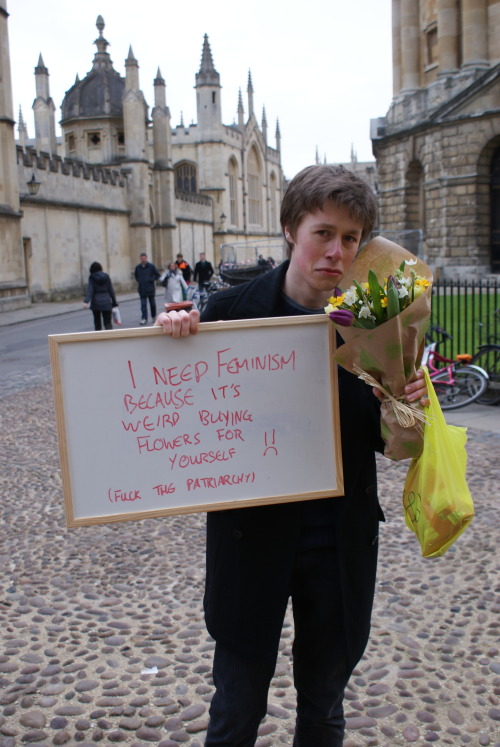 I NEED FEMINISM
BECAUSE IT'S
WEIRD BUYING
FLOWERS FOR
YOURSELF :(
(FUCK THE PATRIARCHY)